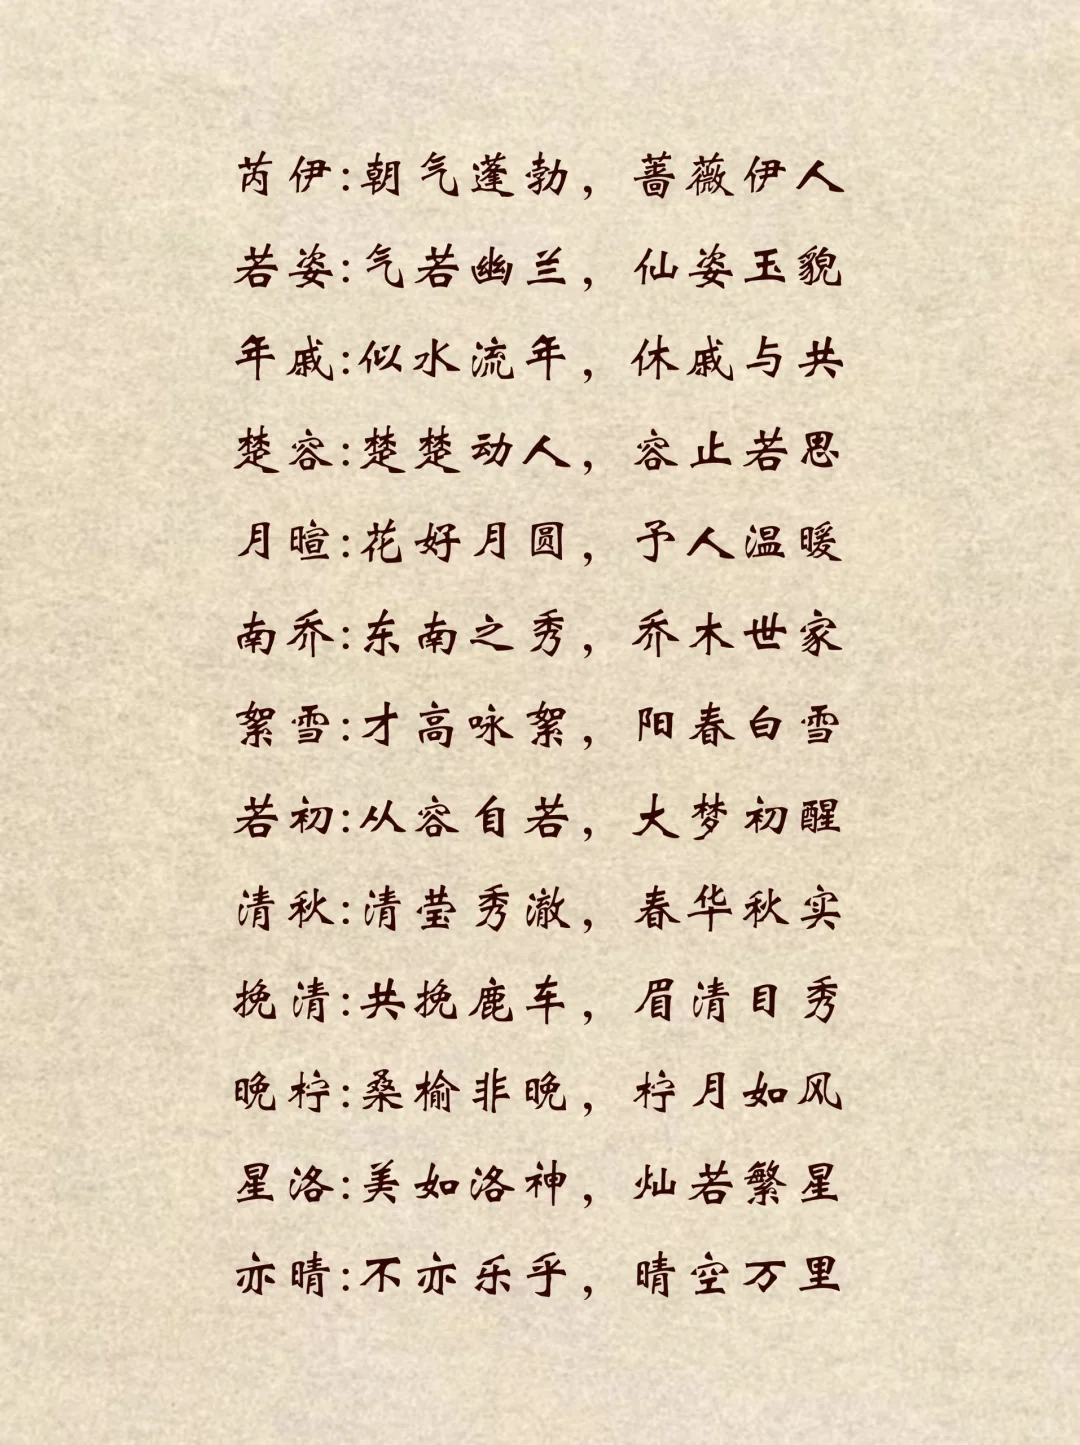 芮伊:朝气蓬勃，蔷薇伊人
若姿:气若幽兰，仙姿玉貌
年戚:似水流年，休戚与共
楚容:楚楚动人，容止若思
月暄:花好月圆，予人温暖
南乔:东南之秀，乔木世家
絮雪:才高咏絮，阳春白雪
若初:从容自若，大梦初醒
清秋:清莹秀澈，春华秋实
挽清:共挽鹿车，眉清目秀
晚柠:桑榆非晚，柠月如风
星洛:美如洛神，灿若繁星
亦晴:不亦乐乎，晴空万里